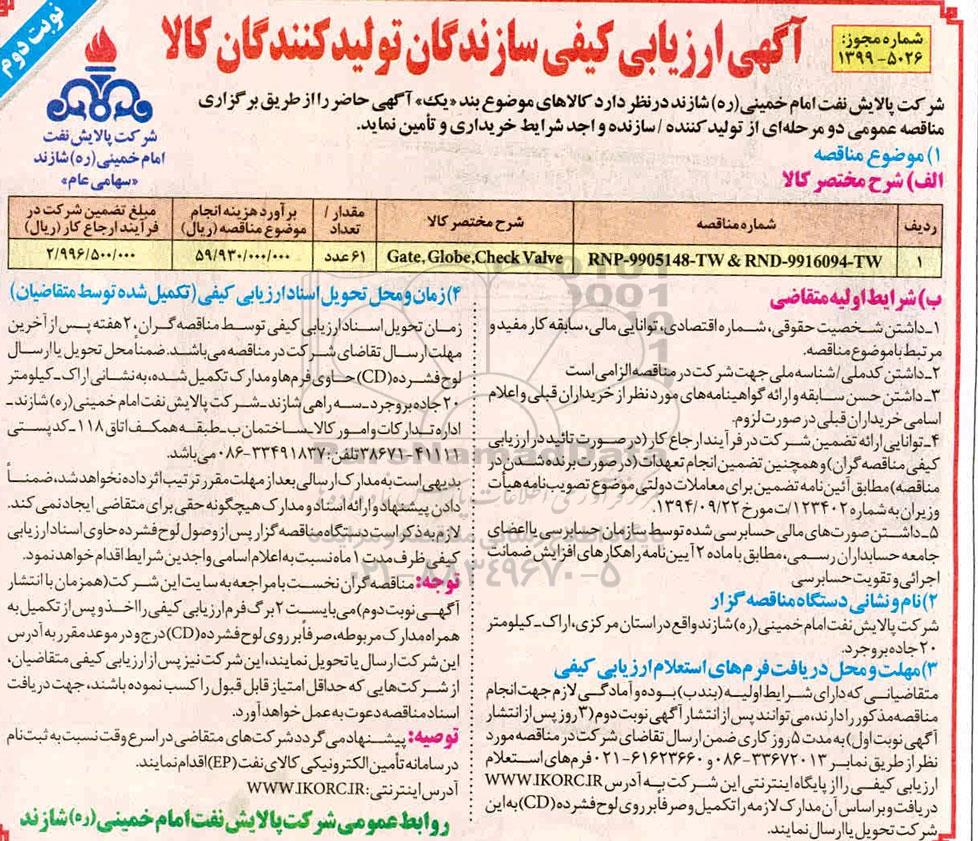 نوبت دوم
شماره مجوز:
۱۳۹۹-۵۰۲۶
آگهی ارزیابی کیفی سازندگان تولیدکنندگان کالا
شرکت پالایش نفت
امام خمینی(ره) شازند
«سهامی عام»
شرکت پالایش نفت امام خمینی(ره) شازند در نظر دارد کالاهای موضوع بند «یک» آگهی حاضر را از طریق برگزاری
مناقصه عمومی دو مرحله‌ای از تولید کننده / سازنده واجد شرایط خریداری و تأمین نماید.
۱) موضوع مناقصه
الف) شرح مختصر کالا
ردیف | شماره مناقصه | شرح مختصر کالا | مقدار / تعداد | برآورد هزینه انجام موضوع مناقصه (ریال) | مبلغ تضمین شرکت در فرآیند ارجاع کار (ریال)
۱ | RNP-9905148-TW & RND-9916094-TW | Gate, Globe, Check Valve | ۶۱ عدد | ۵۹/۹۳۰/۰۰۰/۰۰۰ | ۲/۹۹۶/۵۰۰/۰۰۰
ب) شرایط اولیه متقاضی
۱ـ داشتن شخصیت حقوقی، شماره اقتصادی، توانایی مالی، سابقه کار مفید و
مرتبط با موضوع مناقصه.
۲ـ داشتن کدملی / شناسه ملی جهت شرکت در مناقصه الزامی است
۳ـ داشتن حسن سابقه و ارائه گواهینامه‌های مورد نظر از خریداران قبلی و اعلام
اسامی خریداران قبلی در صورت لزوم.
۴ـ توانایی ارائه تضمین شرکت در فرآیند ارجاع کار (در صورت تائید در ارزیابی
کیفی مناقصه گران) و همچنین تضمین انجام تعهدات (در صورت برنده شدن در
مناقصه) مطابق آئین نامه تضمین برای معاملات دولتی موضوع تصویب نامه هیأت
وزیران به شماره ۱۲۳۴۰۲/ت مورخ ۱۳۹۴/۰۹/۲۲.
۵ـ داشتن صورت‌های مالی حسابرسی شده توسط سازمان حسابرسی یا اعضای
جامعه حسابداران رسمی، مطابق با ماده ۲ آیین نامه راهکارهای افزایش ضمانت
اجرائی و تقویت حسابرسی
۲) نام و نشانی دستگاه مناقصه گزار
شرکت پالایش نفت امام خمینی(ره) شازند واقع در استان مرکزی، اراک ـ کیلومتر
۲۰ جاده بروجرد.
۳) مهلت و محل دریافت فرم‌های استعلام ارزیابی کیفی
متقاضیانی که دارای شرایط اولیه (بند ب) بوده و آمادگی لازم جهت انجام
مناقصه مذکور را دارند، می توانند پس از انتشار آگهی نوبت دوم (۳ روز پس از انتشار
آگهی نوبت اول) به مدت ۵ روز کاری ضمن ارسال تقاضای شرکت در مناقصه مورد
نظر از طریق نمابر ۳۳۶۷۲۰۱۳-۰۸۶ و ۶۱۶۲۳۶۶۰-۰۲۱ فرم‌های استعلام
ارزیابی کیفی را از پایگاه اینترنتی این شرکت به آدرس WWW.IKORC.IR
دریافت و بر اساس آن مدارک لازمه را تکمیل و صرفاً بر روی لوح فشرده (CD) به این
شرکت تحویل یا ارسال نمایند.
۴) زمان و محل تحویل اسناد ارزیابی کیفی (تکمیل شده توسط متقاضیان)
زمان تحویل اسناد ارزیابی کیفی توسط مناقصه گران، ۲ هفته پس از آخرین
مهلت ارسال تقاضای شرکت در مناقصه می باشد. ضمناً محل تحویل یا ارسال
لوح فشرده (CD) حاوی فرم‌ها و مدارک تکمیل شده، به نشانی اراک ـ کیلومتر
۲۰ جاده بروجرد ـ سه راهی شازند ـ شرکت پالایش نفت امام خمینی(ره) شازند ـ
اداره تدارکات و امور کالا ـ ساختمان ب ـ طبقه همکف اتاق ۱۱۸ ـ کد پستی
۳۸۶۷۱-۴۱۱۱۱ تلفن: ۳۳۴۹۱۸۳۷-۰۸۶ می باشد.
بدیهی است به مدارک ارسالی بعد از مهلت مقرر ترتیب اثر داده نخواهد شد، ضمناً
دادن پیشنهاد و ارائه اسناد و مدارک هیچگونه حقی برای متقاضی ایجاد نمی کند.
لازم به ذکر است دستگاه مناقصه گزار پس از وصول لوح فشرده حاوی اسناد ارزیابی
کیفی ظرف مدت ۱ ماه نسبت به اعلام اسامی واجدین شرایط اقدام خواهد نمود.
توجه: مناقصه گران نخست با مراجعه به سایت این شرکت (همزمان با انتشار
آگهی نوبت دوم) می بایست ۲ برگ فرم ارزیابی کیفی را اخذ و پس از تکمیل به
همراه مدارک مربوطه، صرفاً بر روی لوح فشرده (CD) درج و در موعد مقرر به آدرس
این شرکت ارسال یا تحویل نمایند، این شرکت نیز پس از ارزیابی کیفی متقاضیان،
از شرکت‌هایی که حداقل امتیاز قابل قبول را کسب نموده باشند، جهت دریافت
اسناد مناقصه دعوت به عمل خواهد آورد.
توصیه: پیشنهاد می گردد شرکت‌های متقاضی در اسرع وقت نسبت به ثبت نام
در سامانه تأمین الکترونیکی کالای نفت (EP) اقدام نمایند.
آدرس اینترنتی: WWW.IKORC.IR
روابط عمومی شرکت پالایش نفت امام خمینی(ره) شازند
ParsNamadData
۰۲۱-۸۸۳۴۹۶۷۰-۵